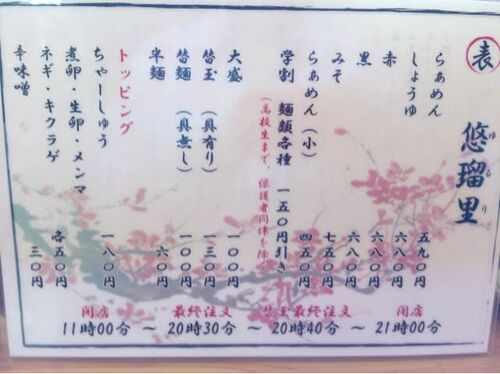 表
悠瑠里
ゆるり
らぁめん 五九〇円
しょうゆ 六八〇円
赤 六八〇円
黒 六八〇円
みそ 七五〇円
らぁめん(小) 四五〇円
学割 麺類各種 一五〇円引き
(高校生まで、保護者同伴を除く)
大盛 一〇〇円
替玉(具有り) 一三〇円
替麺(具無し) 一〇〇円
半麺 六〇円
トッピング
ちゃーしゅう 一八〇円
煮卵・生卵・メンマ
ネギ・キクラゲ 各五〇円
辛味噌 三〇円
開店 最終注文 替玉最終注文 閉店
11時00分 ~ 20時30分 ~ 20時40分 ~ 21時00分